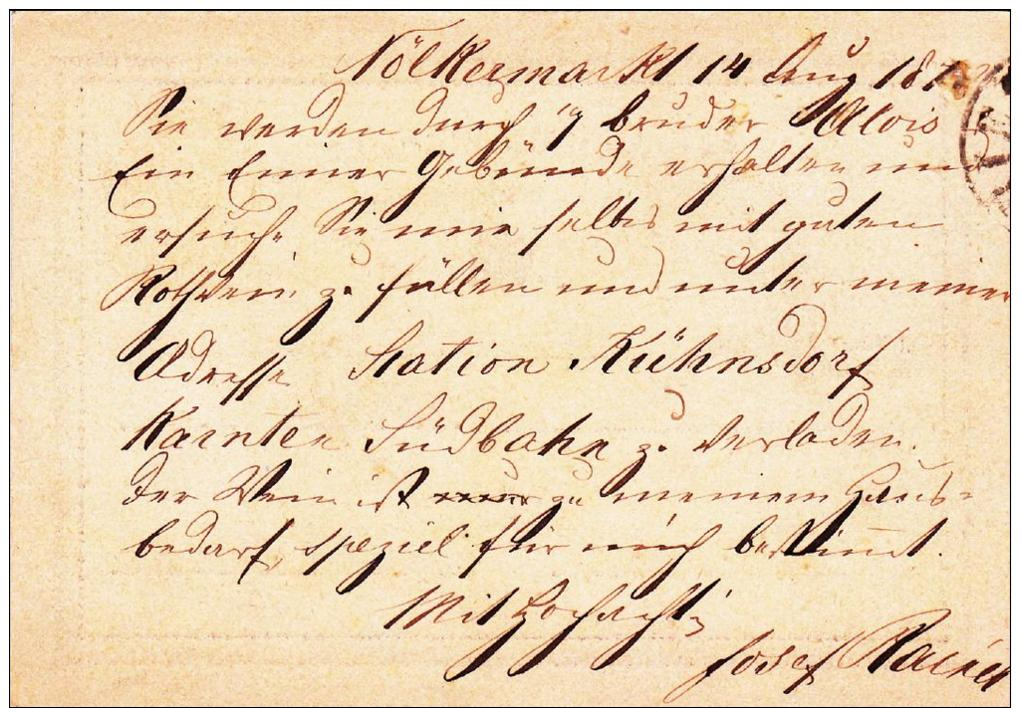 Völkermarkt 14 Aug 187
Sie werden durch bruder Alois
Ein Eimer Gebünde erhalten und
ersuche Sie mir selbes mit guten
Rothwein zu füllen und unter meiner
Adresse Station Kühnsdorf
Kärnten Südbahn zu verladen.
Der Wein ist zu meinem Haus-
bedarf, speziel für mich bestimmt.
Mit Hochacht
Josef